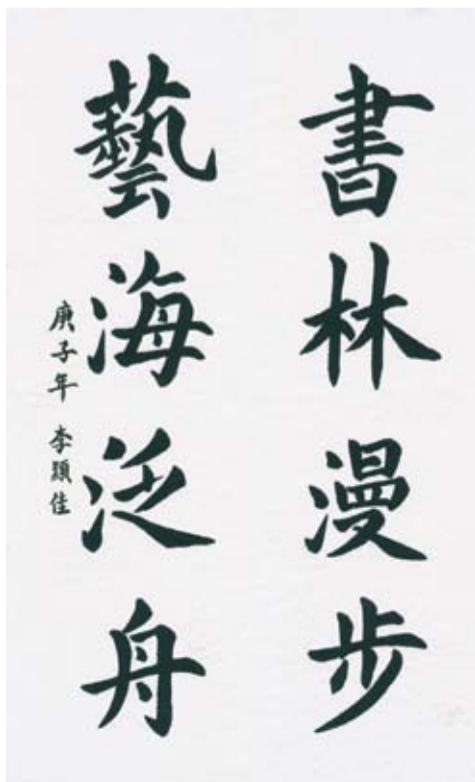 書林漫步
藝海泛舟
庚子年 李頴佳